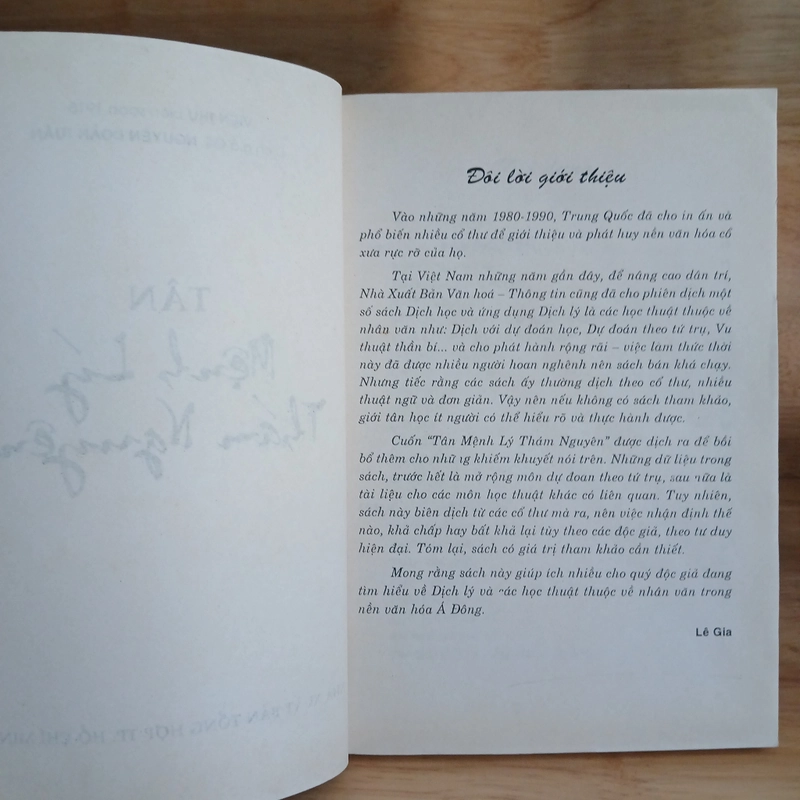 TÂN
Mệnh Lý
Thám Nguyên
Đôi lời giới thiệu
Vào những năm 1980-1990, Trung Quốc đã cho in ấn và
phổ biến nhiều cổ thư để giới thiệu và phát huy nền văn hóa cổ
xưa rực rỡ của họ.
Tại Việt Nam những năm gần đây, để nâng cao dân trí,
Nhà Xuất Bản Văn hoá – Thông tin cũng đã cho phiên dịch một
số sách Dịch học và ứng dụng Dịch lý là các học thuật thuộc về
nhân văn như: Dịch với dự đoán học, Dự đoán theo tứ trụ, Vu
thuật thần bí... và cho phát hành rộng rãi – việc làm thức thời
này đã được nhiều người hoan nghênh nên sách bán khá chạy.
Nhưng tiếc rằng các sách ấy thường dịch theo cổ thư, nhiều
thuật ngữ và đơn giản. Vậy nên nếu không có sách tham khảo,
giới tân học ít người có thể hiểu rõ và thực hành được.
Cuốn “Tân Mệnh Lý Thám Nguyên” được dịch ra để bồi
bổ thêm cho những khiếm khuyết nói trên. Những dữ liệu trong
sách, trước hết là mở rộng môn dự đoan theo tứ trụ, sau nữa là
tài liệu cho các môn học thuật khác có liên quan. Tuy nhiên,
sách này biên dịch từ các cổ thư mà ra, nên việc nhận định thế
nào, khả chấp hay bất khả lại tùy theo các độc giả, theo tư duy
hiện đại. Tóm lại, sách có giá trị tham khảo cần thiết.
Mong rằng sách này giúp ích nhiều cho quý độc giả đang
tìm hiểu về Dịch lý và các học thuật thuộc về nhân văn trong
nền văn hóa Á Đông.
Lê Gia